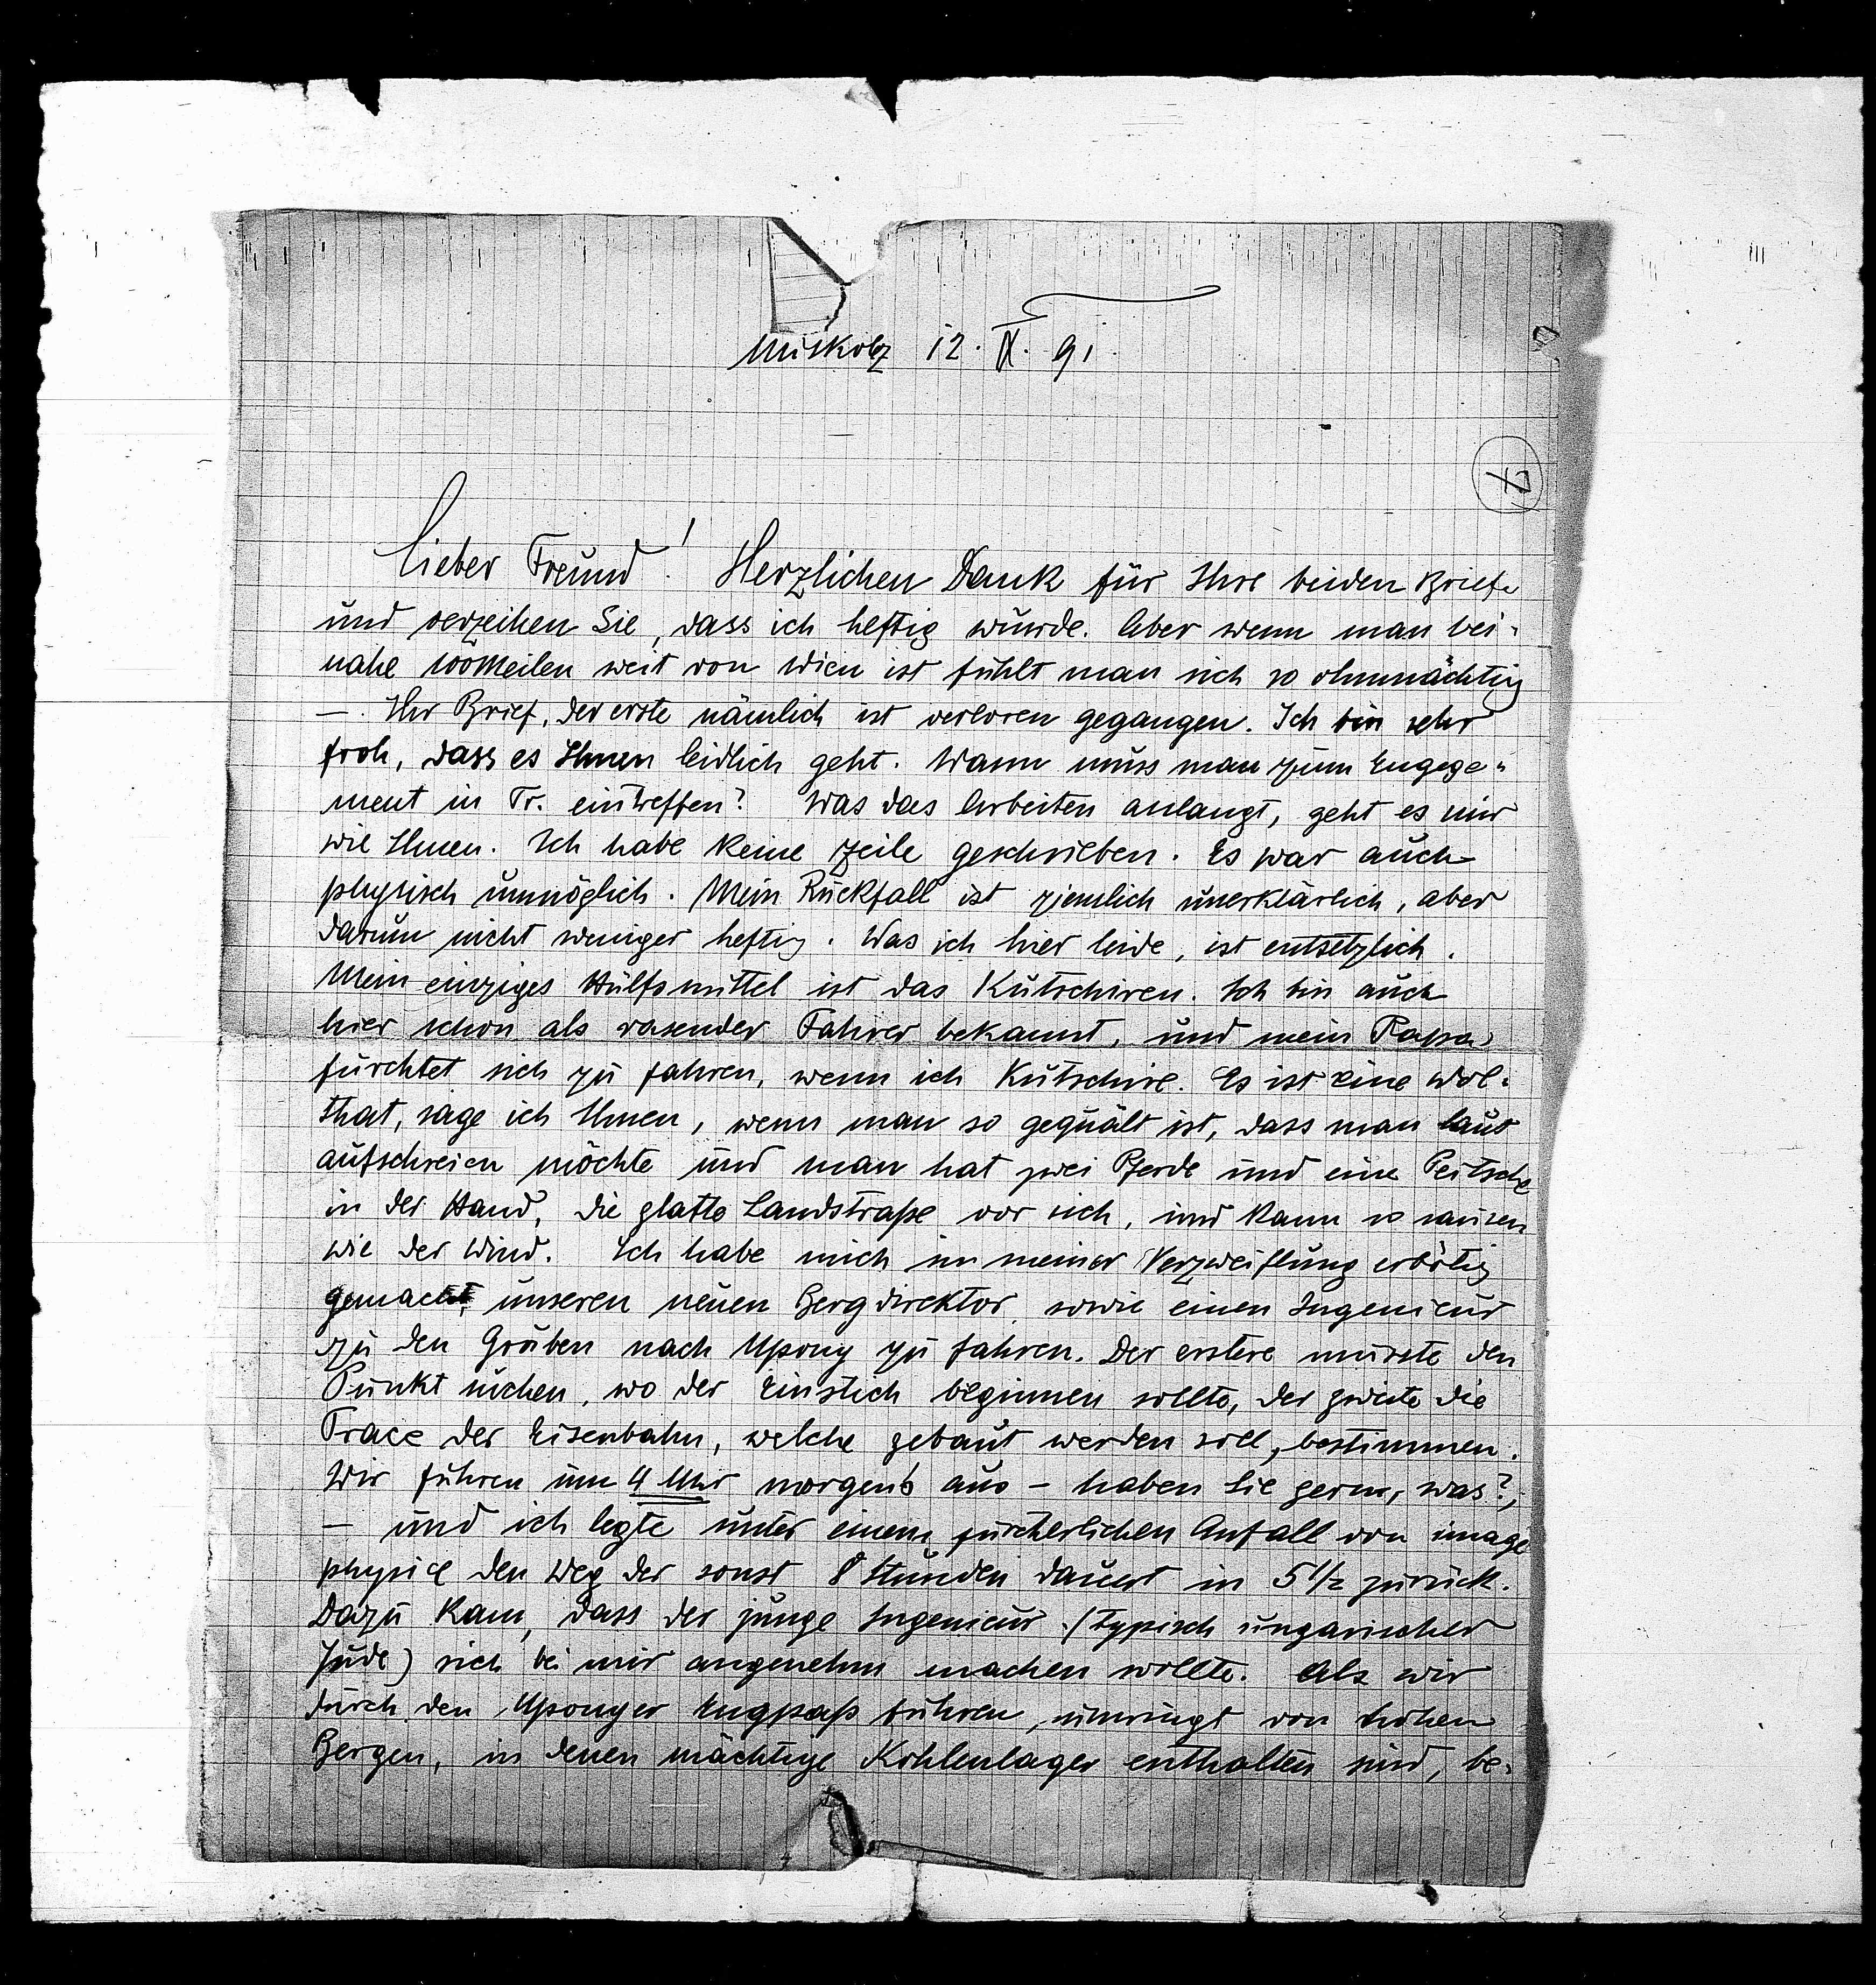 Miskolz 12. IX. 91.
X
Lieber Freund! Herzlichen Dank für Ihre beiden Briefe
und verzeihen Sie, dass ich heftig wurde. Aber wenn man bei-
nahe 100 Meilen weit von Wien ist fühlt man sich so ohnmächtig
—. Ihr Brief, der erste nämlich ist verloren gegangen. Ich bin sehr
froh, dass es Ihnen leidlich geht. Wann muss man zum Engage-
ment in Tr. eintreffen? Was das Arbeiten anlangt, geht es mir
wie Ihnen. Ich habe keine Zeile geschrieben. Es war auch
physisch unmöglich. Mein Rückfall ist ziemlich unerklärlich, aber
darum nicht weniger heftig. Was ich hier leide, ist entsetzlich.
Mein einziges Hülfsmittel ist das Kutschiren. Ich bin auch
hier schon als rasender Fahrer bekannt, und mein Papa
fürchtet sich zu fahren, wenn ich kutschire. Es ist eine Wol-
that, sage ich Ihnen, wenn man so gequält ist, dass man laut
aufschreien möchte und man hat zwei Pferde und eine Peitsche
in der Hand, die glatte Landstraße vor sich, und kann so sausen
wie der Wind. Ich habe mich in meiner Verzweiflung erbötig
gemacht, unseren neuen Bergdirektor, sowie einen Ingenieur
zu den Gruben nach Upony zu fahren. Der erstere musste den
Punkt suchen, wo der Einstich beginnen sollte, der zweite die
Trace der Eisenbahn, welche gebaut werden soll, bestimmen.
Wir fuhren um 4 Uhr morgens aus – haben Sie gern, was?,
— und ich legte unter einem fürchterlichen Anfall von image
physice den Weg der sonst 8 Stunden dauert in 5 1/2 zurück.
Dazu kam, dass der junge Ingenieur (typisch ungarischer
Jude) sich bei mir angenehm machen wollte. Als wir
durch den Uponyer Engpaß fuhren, umringt von hohen
Bergen, in denen mächtige Kohlenlager enthalten sind, be-